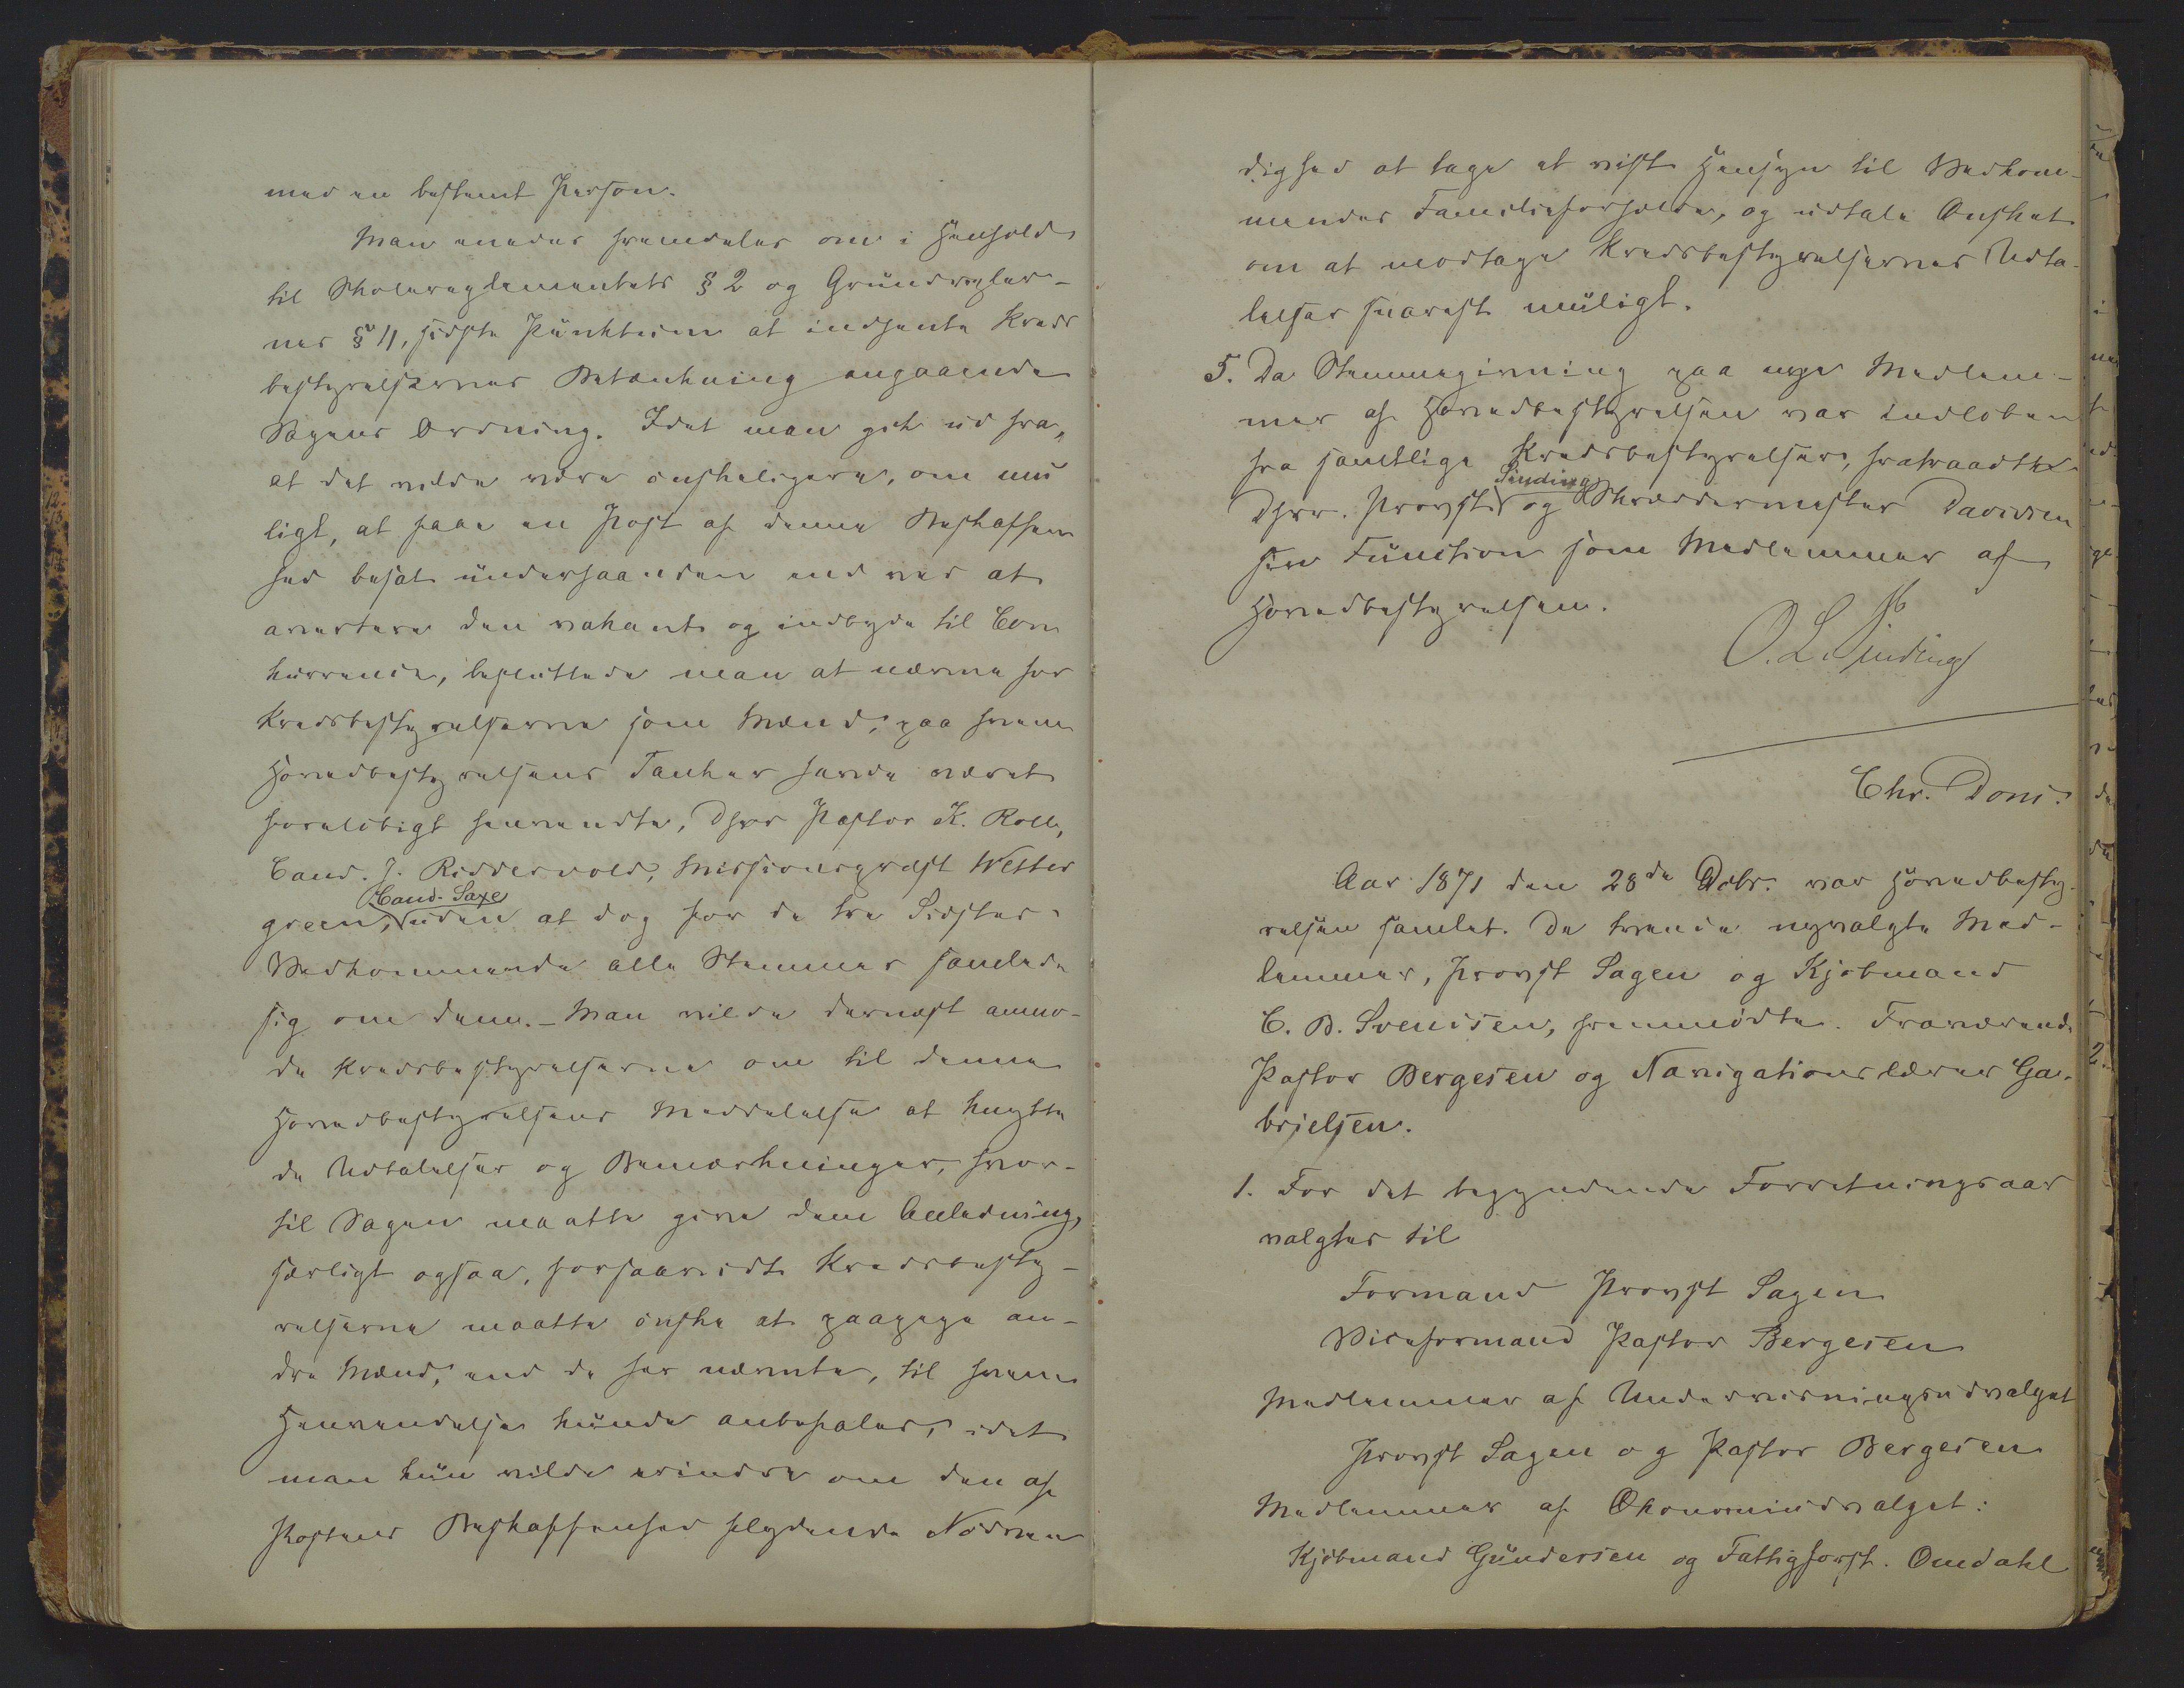 med en bestemt Person.
Man enedes fremdeles om i Henhold
til Skolereglementets § 2 og Grundregler-
nes § 11, sidste Punktum at indhente Kreds
bestyrelsernes Betænkning angaaende
Sagens Ordning. Idet man gik ud fra,
at det vilde være ønskeligere, om mu
ligt, at faae en Post af denne Beskaffen
hed besat underhaanden end ved at
avertere den vakant og indbyde til Con
kurrence, besluttede man at nævne for
Kredsbestyrelserne som Mænd, paa hvem
Hovedbestyrelsens Tanker havde været
foreløbigt henvendte, Dhrr Pastor K. Roll,
Cand. J. Riddervold, Missionspræst Wetter
Cand. Saxe
green, uden at dog for de tre Sidstes
Vedkommende alle Stemmer samlede
sig om dem. – Man vilde dernæst anmo-
de Kredsbestyrelserne om til denne
Hovedbestyrelsens Meddelelse at knytte
de Udtalelser og Bemærkninger, hvor-
til Sagen maatte give dem Anledning,
særligt ogsaa, forsaavidt Kredsbesty-
relserne maatte ønske at paapege an-
dre Mænd, end de her nævnte, til hvem
Henvendelse kunde anbefales, idet
man kun vilde erindre om den af
Postens Beskaffenhed flydende Nødven
dighed at tage et vist Hensyn til Vedkom-
mendes Familieforholde, og udtale Ønsket
om at modtage Kredsbestyrelsernes Udta-
lelser snarest muligt.
5. Da Stemmegivning paa nye Medlem-
mer af Hovedbestyrelsen var indløben
fra samtlige Kredsbestyrelser, fratraadte
Sinding
Dhrr. Provst og Skræddermester Davidsen
sin Function som Medlemmer af
Hovedbestyrelsen.
O. L. Sinding
Chr. Dons.
Aar 1871 den 28de Decbr. var Hovedbesty-
relsen samlet. De tvende nyvalgte Med-
lemmer, Provst Sagen og Kjøbmand
C. B. Svendsen, fremmødte. Fraværende
Pastor Bergesen og Navigationslærer Ga-
brielsen.
1. For det begyndende Forretningsaar
valgtes til
Formand Provst Sagen
Viceformand Pastor Bergesen
Medlemmer af Undervisningsudvalget
Provst Sagen og Pastor Bergesen
Medlemmer af Økonomiudvalget:
Kjøbmand Gundersen og Fattigforst. Omdahl